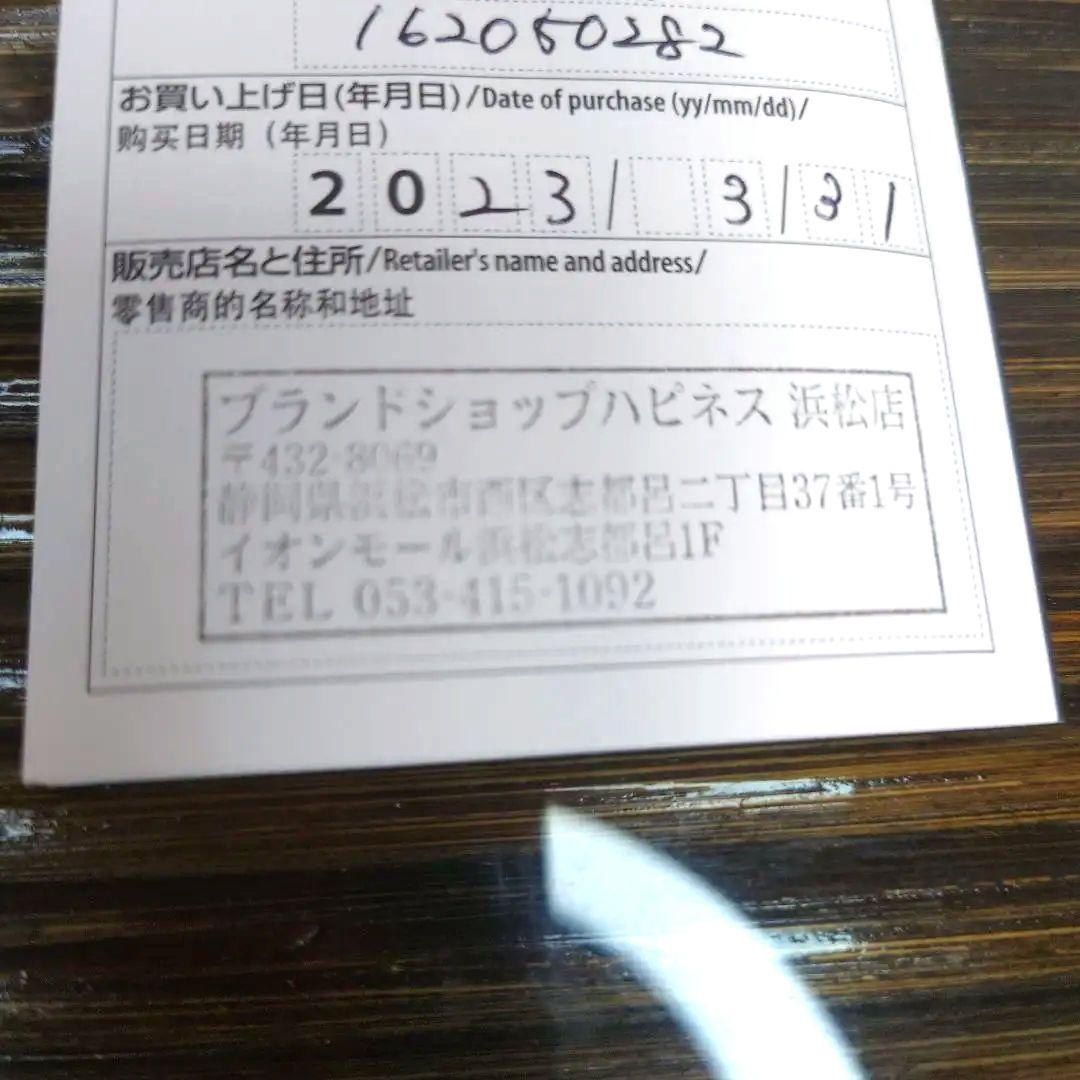 162050282
お買い上げ日(年月日)/Date of purchase (yy/mm/dd)/
购买日期（年月日）
2023/ 3/31
販売店名と住所/Retailer's name and address/
零售商的名称和地址
ブランドショップハピネス 浜松店
〒432-8069
静岡県浜松市西区志都呂二丁目37番1号
イオンモール浜松志都呂1F
TEL 053-415-1092